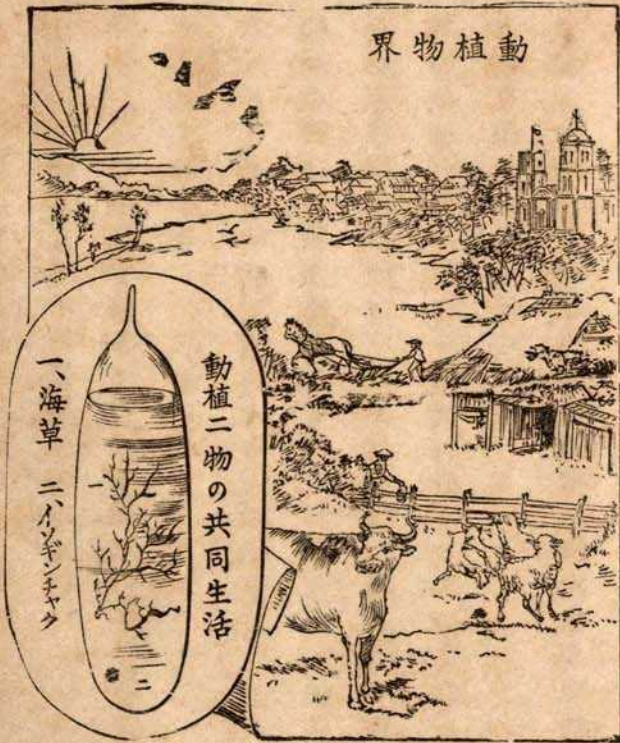 界物植動
動植二物の共同生活
一、海草 二、イソギンチャク
一
二